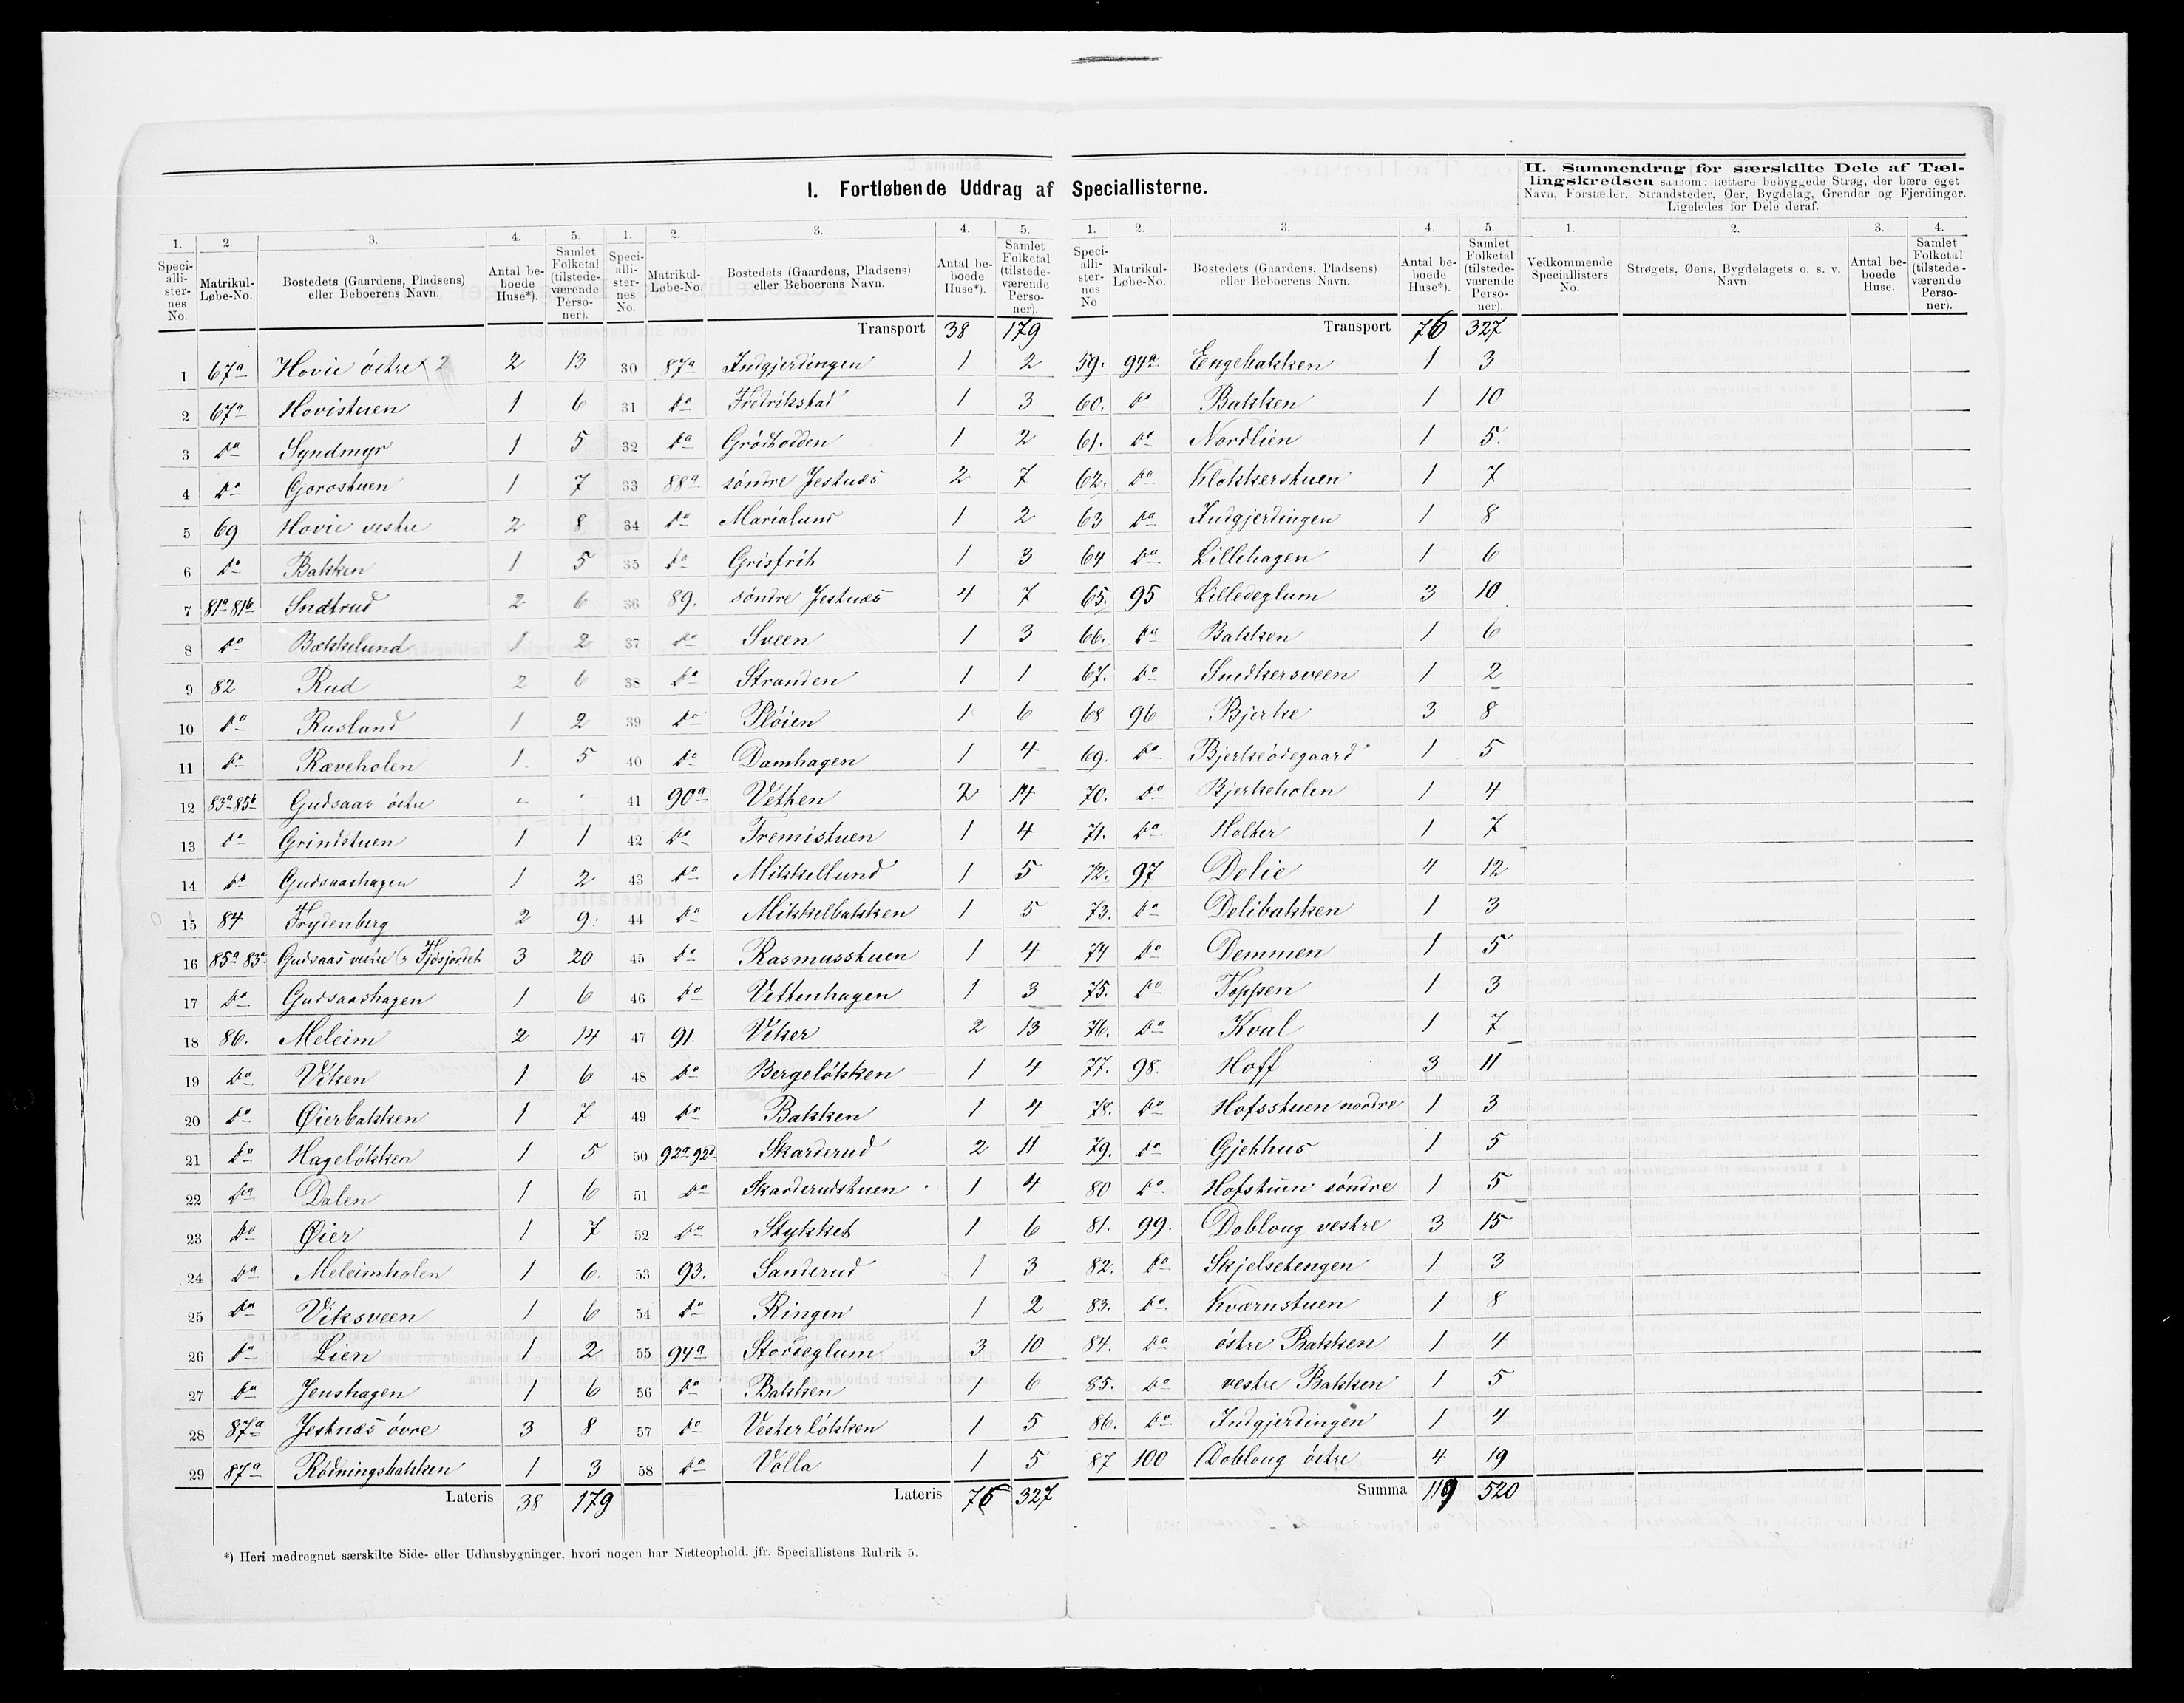 I. Fortløbende Uddrag af Speciallisterne.
II. Sammendrag for særskilte Dele af Tæl-
lingskredsen saasom: tættere bebyggede Strøg, der bære eget
Navn, Forstæder, Strandsteder, Øer, Bygdelag, Grender og Fjerdinger.
Ligeledes for Dele deraf.
1. 2 3. 4. 5.
Speci-alli-ster-nes No. Matrikul-Løbe-No. Bostedets (Gaardens, Pladsens) eller Beboerens Navn. Antal be-boede Huse*). Samlet Folketal (tilstede-værende Perso-ner).
1 67a Hovie östre 2 2 13
2 67a Hovistuen 1 6
3 do Syndmyr 1 5
4 do Gjorostuen 1 7
5 69 Hovie vestre 2 8
6 do Bakken 1 5
7 81a 81b Snetrud 2 6
8 do Bakkelund 1 2
9 82 Rud 2 6
10 do Rusland 1 2
11 do Ræveholen 1 5
12 83a 85b Gudsaas östre - -
13 do Grindstuen 1 1
14 do Gudsaashagen 1 2
15 84 Frydenberg 2 9
16 85a 83b Gudsaas vestre Fjösjordet 3 20
17 do Gudsaashagen 1 6
18 86. Meleim 2 14
19 do Viken 1 6
20 do Øierbakken 1 7
21 do Hagelökken 1 5
22 do Dalen 1 6
23 do Øier 1 7
24 do Meleimholen 1 6
25 do Viksveen 1 6
26 do Lien 1 2
27 do Jenshagen 1 6
28 87a Jestnæs övre 3 8
29 87a Rödningsbakken 1 3
Lateris 38 179
1. 2. 3. 4. 5.
Speci-alli-ster-nes No. Matrikul-Løbe-No. Bostedets (Gaardens, Pladsens) eller Beboerens Navn. Antal be-boede Huse*). Samlet Folketal (tilstede-værende Perso-ner).
Transport 38 179
30 87a Indgjerdingen 1 2
31 do Fredrikstad 1 3
32 do Grödhodden 1 2
33 88a söndre Jestnæs 2 7
34 do Marialund 1 2
35 do Grisfrit 1 3
36 89. söndre Jestnæs 4 7
37 do Sveen 1 3
38 do Stranden 1 1
39 do Plöien 1 6
40 do Damhagen 1 4
41 90a Vethen 2 14
42 do Fremistuen 1 4
43 do Mikkellund 1 5
44 do Mikkelbakken 1 5
45 do Rasmusstuen 1 4
46 do Vethenhagen 1 3
47 91. Viker 2 13
48 do Bergelökken 1 4
49 do Bakken 1 4
50 92a 92d Skarderud 2 11
51 do Skarderudstuen 1 4
52 do Stykket 1 6
53 93. Sanderud 1 3
54 do Ringen 1 2
55 94a Stordeglum 3 10
56 do Bakken 1 6
57 do Vesterlökken 1 5
58 do Volla 1 5
Lateris 76 327
1. 2. 3. 4. 5.
Speci-alli-ster-nes No. Matrikul-Løbe-No. Bostedets (Gaardens, Pladsens) eller Beboerens Navn. Antal be-boede Huse*). Samlet Folketal (tilstede-værende Perso-ner).
Transport 76 327
59. 94a Engebakken 1 3
60. do Bakken 1 10
61. do Nordlien 1 5.
62. do Klokkerstuen 1 7
63 do Indgjerdingen 1 8
64 do Lillehagen 1 6
65. 95 Lilledeglum 3 10
66. do Bakken 1 6
67. do Snedkersveen 1 2
68 96 Bjerke 3 8
69. do Bjerkeödegaard 1 5
70. do Bjerkeholen 1 4
71. do Holter 1 7
72. 97 Delie 4 12
73. do Delibakken 1 3
74 do Demmen 1 5
75. do Toppen 1 3
76. do Kval 1 7
77. 98. Hoff 3 11
78. do Hofsstuen nordre 1 3
79. do Gjethus 1 5
80 do Hofstuen söndre 1 5
81. 99. Dobloug vestre 3 15
82. do Skjelsetengen 1 3
83. do Kværnstuen 1 8
84. do östre Bakken 1 4
85. do vestre Bakken 1 5
86. do Indgjerdingen 1 4
87 100 Dobloug östre 4 19
Summa 119 520
1. 2. 3. 4.
Vedkommende Speciallisters No. Strøgets, Øens, Bygdelagets o. s. v. Navn. Antal be-boede Huse. Samlet Folketal (tilstede-værende Perso-ner).
*) Heri medregnet særskilte Side- eller Udhusbygninger, hvori nogen har Natteophold, jfr. Speciallistens Rubrik 5.